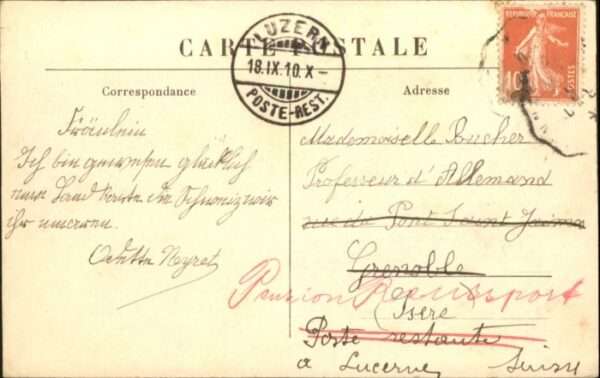 CARTE POSTALE
Correspondance
Adresse
LUZERN
18.IX.10.X-
POSTE-REST.
REPUBLIQUE FRANÇAISE
10
POSTES
Fräulein
Ich bin gewesen glücklich
Karte die Schweiz wir
ihr
Odette Neyret
Mademoiselle Bucher
Professeur d'Allemand
rue du Pont Saint Jaime
Grenoble
Pension
Isère
Poste restante
a Lucerne Suisse